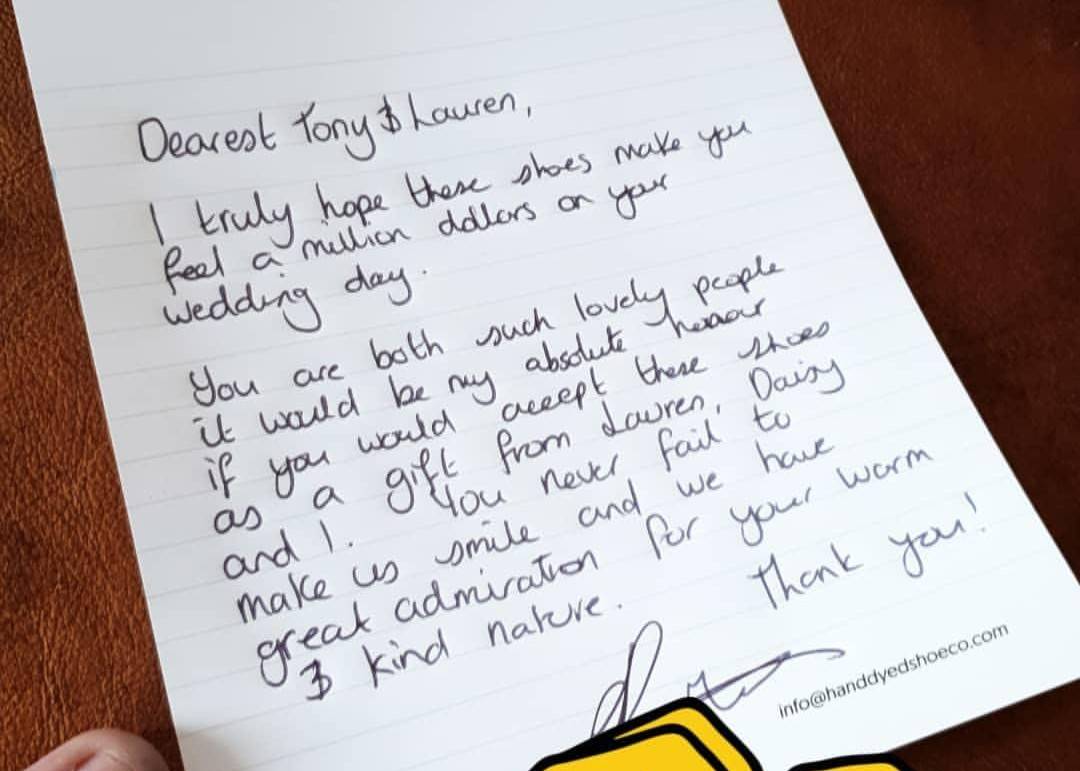 Dearest Tony & Lauren,
I truly hope these shoes make you
feel a million dollars on your
wedding day.
You are both such lovely people
it would be my absolute honour
if you would accept these shoes
as a gift from Lauren, Daisy
and I. You never fail to
make us smile and we have
great admiration for your warm
& kind nature.
Thank you!
info@handdyedshoeco.com